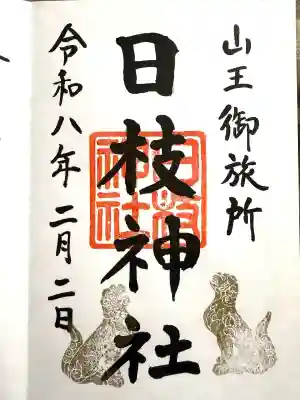 山王御旅所
日枝神社
令和八年二月二日
日枝神社